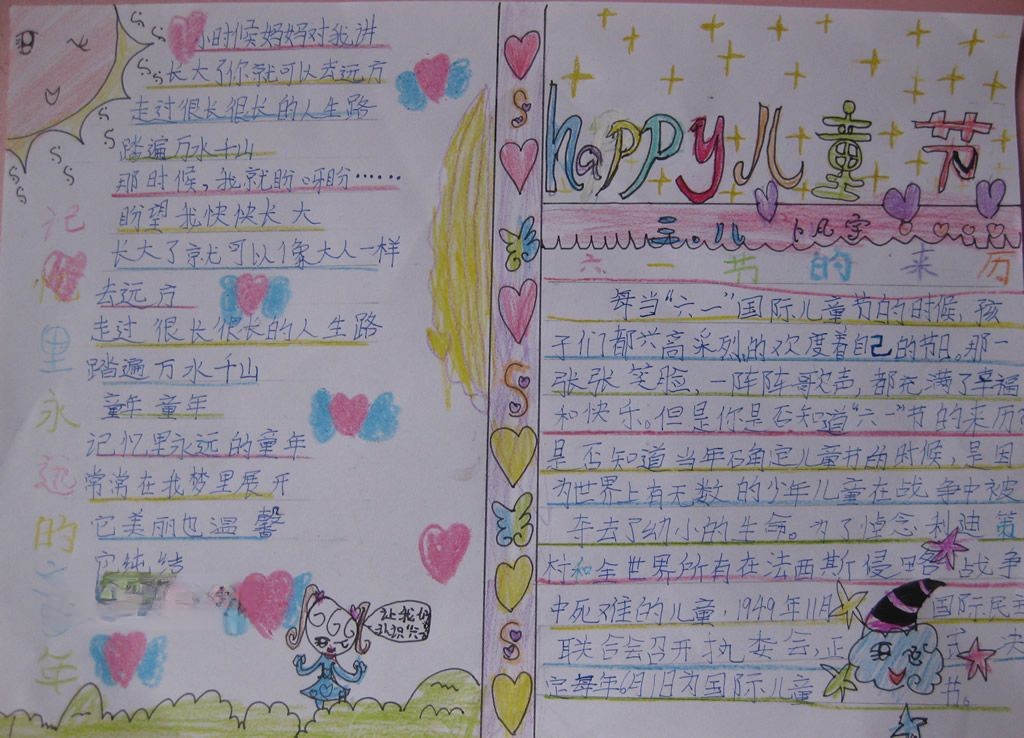 小时候妈妈对我讲
长大了你就可以去远方
走过很长很长的人生路
踏遍万水千山
那时候，我就盼呀盼……
盼望我快快长大
长大了就可以像大人一样
去远方
走过很长很长的人生路
踏遍万水千山
童年童年
记忆里永远的童年
常常在我梦里展开
它美丽也温馨
它纯洁
记忆里永远的童年
让我们
happy儿童节
三.儿
六一节的来历
每当“六一”国际儿童节的时候，孩
子们都兴高采烈的欢度着自己的节日。那一
张张笑脸，一阵阵歌声，都充满了幸福
和快乐。但是你是否知道“六一”节的来历？
是否知道当年确定儿童节的时候，是因
为世界上有无数的少年儿童在战争中被
夺去了幼小的生命。为了悼念利迪策
村和全世界所有在法西斯侵略战争
中死难的儿童，1949年11月国际民主
联合会召开执委会，正式决
定每年6月1日为国际儿童节。